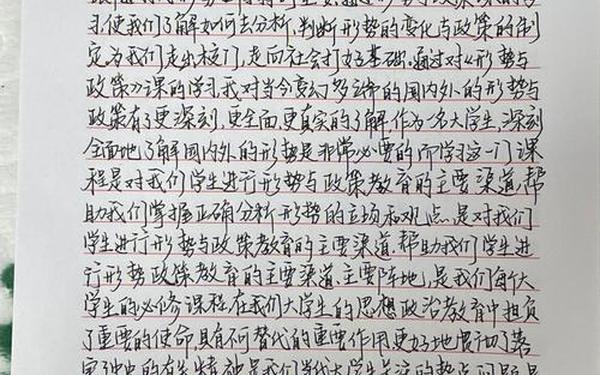 习,使我们了解如何去分析,判断形势的变化与政策的制
定,为我们走出校门,走向社会打好基础.通过对《形势与
政策》课的学习,我对当今变幻多端的国内外的形势与
政策有了更深刻,更全面,更真实的了解.作为一名大学生,深刻
全面地了解国内外的形势是非常必要的.而学习这一门课
程是对我们学生进行形势与政策教育的主要渠道,帮
助我们掌握正确分析形势的立场和观点,是对我们
学生进行形势与政策教育的主要渠道.帮助我们学生进
行形势政策教育的主要渠道.主要阵地,是我们每个大
学生的必修课程,在我们大学生的思想政治教育中担负
了重要的使命,具有不可替代的重要作用.更好地贯彻了落
是我们当代大学生关注的热点问题,是